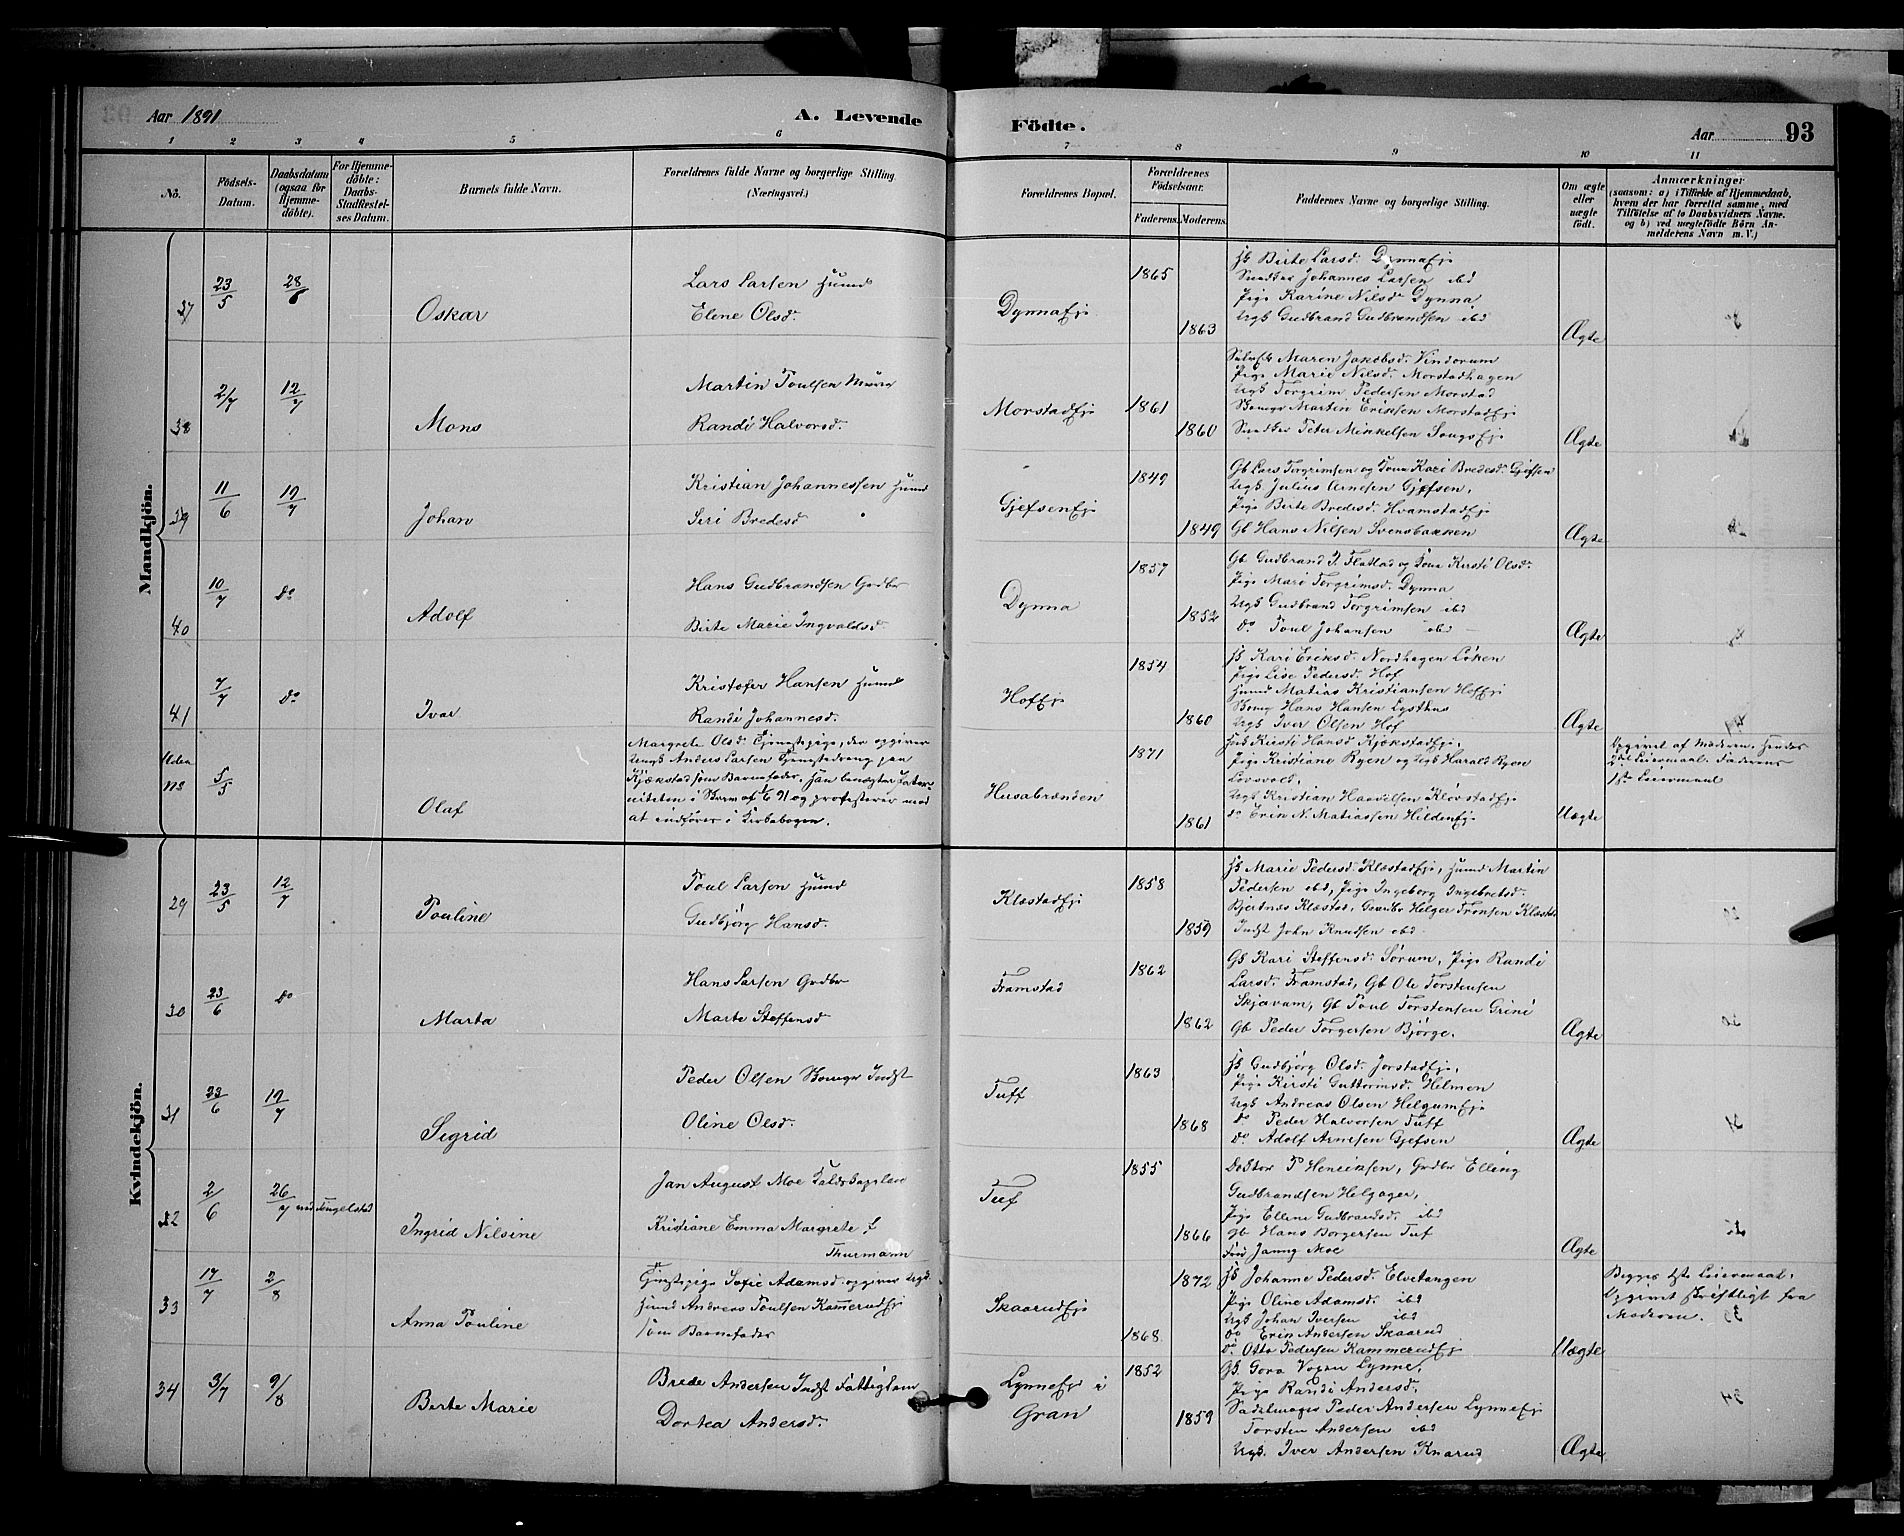 Aar 1891
A. Levende
Födte.
Aar
93
1
2
3
4
5
6
7
8
9
10
11
No.
Födsels-
Datum.
Daabsdatum
(ogsaa for
Hjemme-
döbte).
For Hjemme-
döbte:
Daabs-
Stadfæstel-
ses Datum.
Barnets fulde Navn.
Forældrenes fulde Navne og borgerlige Stilling
(Næringsvei.)
Forældrenes Bopæl.
Forældrenes
Födselsaar.
Faderens.
Moderens.
Faddernes Navne og borgerlige Stilling.
Om ægte
eller
uægte
födt.
Anmærkninger
(saasom: a) i Tilfælde af Hjemmedaab,
hvem der har forrettet samme, med
Tilföielse af to Daabsvidners Navne,
og b) ved uægtefödte Börn An-
melderens Navn m. V.)
Mandkjön.
37
23/5
28/6
Oskar
Lars Larsen Husmd
Elene Olsd.
Dynnaeje
1865
1863
Birte Larsd. Dynnaeje
Snedker Johannes Larsen ibd
Pige Karine Nilsd Dynna
Ungk Gudbrand Gudbrandsen ibd
Ægte
38
2/7
12/7
Mons
Martin Poulsen Murer
Randi Halvorsd.
Morstadeje
1861
1860
Maren Jakobsd. Vindorum
Pige Marie Nilsd. Morstadhagen
Ungk Torgrim Pedersen Morstad
Martin Eriksen Morstadeje
Snedker Peter Mikkelsen Sougseje
Ægte
39
11/6
19/7
Johan
Kristian Johannessen Husmd
Siri Bredesd
Gjefseneje
1849
1849
Gb Lars Torgrimsen og Kone Kari Bredesd. Gjefsen
Ungk Julius Arnesen Gjefsen,
Pige Birte Bredesd. Hvamstadeje
Gb Hans Nilsen Svensbakken
Ægte
40
10/7
Do
Adolf
Hans Gudbrandsen Grdbr
Birte Marie Ingvaldsd
Dynna
1857
1852
Gb Gudbrand P. Flatlad og Kone Kirsti Olsd.
Pige Mari Torgrimsd. Dynna
Ungk Gudbrand Torgrimsen ibd
Do Poul Johansen ibd
Ægte
41
7/7
Do
Ivar
Kristofer Hansen Husmd
Randi Johannesd.
Hofeje
1854
1860
Kari Eriksd. Nordhagen Löken
Pige Lise Pedersd. Hof
Husmd Matias Kristiansen Hofeje
Hans Hansen Lysthus
Ungk Iver Olsen Hof
Ægte
Uden
No
5/5
Olaf
Margrete Olsd. Tjenestepige, der opgiver
Ungk Anders Larsen Tjenestedreng paa
Kjækstad som Barnefader. Han benægter Pater-
niteten i Skrivn af 1/6 91 og protesterer mod
at indföres i Kirkebogen.
Husabrænden
1871
1861
Kirsti Hansd. Kjækstadeje,
Pige Kristiane Ryen og Ungk Harald Ryen
Lovsvold,
Ungk Kristian Haavelsen Klövstadeje
Do Erik N. Matiassen Hildeneje
Uægte
Opgivet af Moderen. Hendes
2det Leiermaal. Faderens
1ste Leiermaal
Kvindekjön.
29
23/5
12/7
Pouline
Poul Larsen Husmd
Gudbjörg Hansd.
Klæstadeje
1858
1859
Marie Pedersd. Klæstadeje, Husmd Martin
Pedersen ibd, Pige Ingeborg Ingebretsd.
Bjertnæs Klæstad, Grdbr Helger Tronsen Klæstad
Indst John Knudsen ibd.
30
23/6
Do
Marta
Hans Larsen Grdbr
Marte Steffensd
Framstad
1862
1862
Gk Kari Steffensd. Sörum, Pige Randi
Larsd. Framstad, Gb Ole Torstensen
Skjævum, Gb Poul Torstensen Grini
Gb Peder Torgersen Björge.
Ægte
31
23/6
19/7
Sigrid
Peder Olsen Indst
Oline Olsd.
Tuff
1863
1868
Gudbjörg Olsd. Jorstadeje,
Pige Kirsti Guttormsd. Helmen
Ungk Andreas Olsen Helgumeje
Do Peder Halvorsen Tuff
Do Adolf Arnesen Gjefsen
Ægte
32
2/6
26/7 ved Tingelstad
Ingrid Nilsine
Jan August Moe
Kristiane Emma Margrete f.
Thurmann
Tuf
1855
1866
Doktor P Henriksen, Grdbr Elling
Gudbrandsen Helgager,
Pige Ellene Gudbrandsd. ibd
Gb Hans Borgersen Tuf
Frk Janny Moe
Ægte
33
17/7
2/8
Anna Pouline
Tjenestepige Sofie Adamsd. opgiver Ungk.
Husmd Andreas Poulsen Kammerudeje
som Barnefader
Skaarudeje
1872
1868
Johanne Pedersd. Elvetangen
Pige Oline Adamsd. ibd
Ungk Johan Iversen ibd
Do Erik Andersen Skaarud
Do Otto Pedersen Kammerudeje
Uægte
Begges 1ste Leiermaal.
Opgivet skriftligt fra
Moderen.
34
3/7
9/8
Berte Marie
Brede Andersen Indst Fattiglem
Dortea Andersd.
Lynneeje i
Gran
1852
1859
Gk. Goro Lynne,
Pige Randi Andersd.
Sadelmager Peder Andersen Lynneeje
Torsten Andersen ibd
Ungk. Iver Andersen Knarud
Ægte